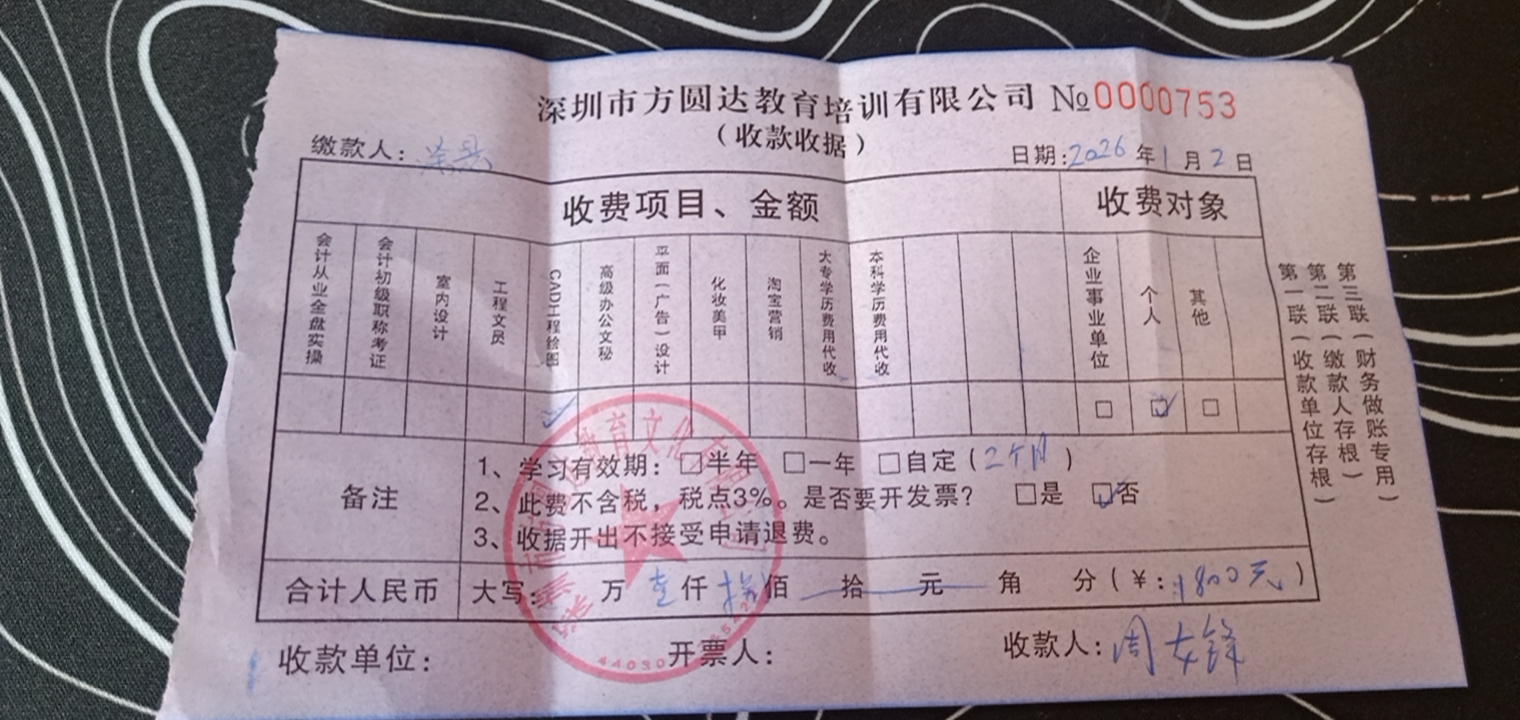 深圳市方圆达教育培训有限公司 №0000753
（收款收据）
缴款人：
日期:2026年1月2日
收费项目、金额
收费对象
会计从业全盘实操
会计初级职称考证
室内设计
工程文员
CAD工程绘图
高级办公文秘
平面（广告）设计
化妆美甲
淘宝营销
大专学历费用代收
本科学历费用代收
企业事业单位
个人
其他
☐ ☑ ☐
备注
1、学习有效期：☐半年 ☐一年 ☐自定（2个月）
2、此费不含税，税点3%。是否要开发票？ ☐是 ☑否
3、收据开出不接受申请退费。
合计人民币
大写： 万 壹仟 捌佰 拾 元 角 分（¥：1800元）
收款单位：
开票人：
收款人：周
第一联（收款单位存根）
第二联（缴款人存根）
第三联（财务做账专用）
教育文化有限
44030